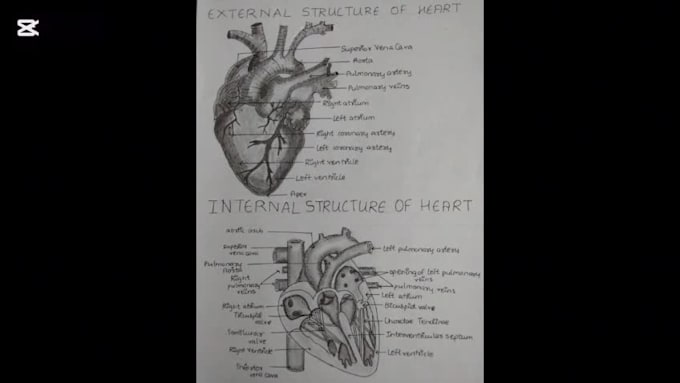 EXTERNAL STRUCTURE OF HEART
Superior Vena Cava
Aorta
Pulmonary artery
Pulmonary veins
Right atrium
Left atrium
Right coronary artery
Left coronary artery
Right ventricle
Left ventricle
Apex
INTERNAL STRUCTURE OF HEART
superior
vena cava
Pulmonary
Aorta
Right
pulmonary
veins
Right atrium
Tricuspid
valve
Semilunar
valve
Right ventricle
Inferior
vena cava
Left pulmonary artery
opening of left pulmonary
veins
pulmonary veins
Left atrium
Bicuspid valve
Chordae Tendinae
Interventricular septum
Left ventricle